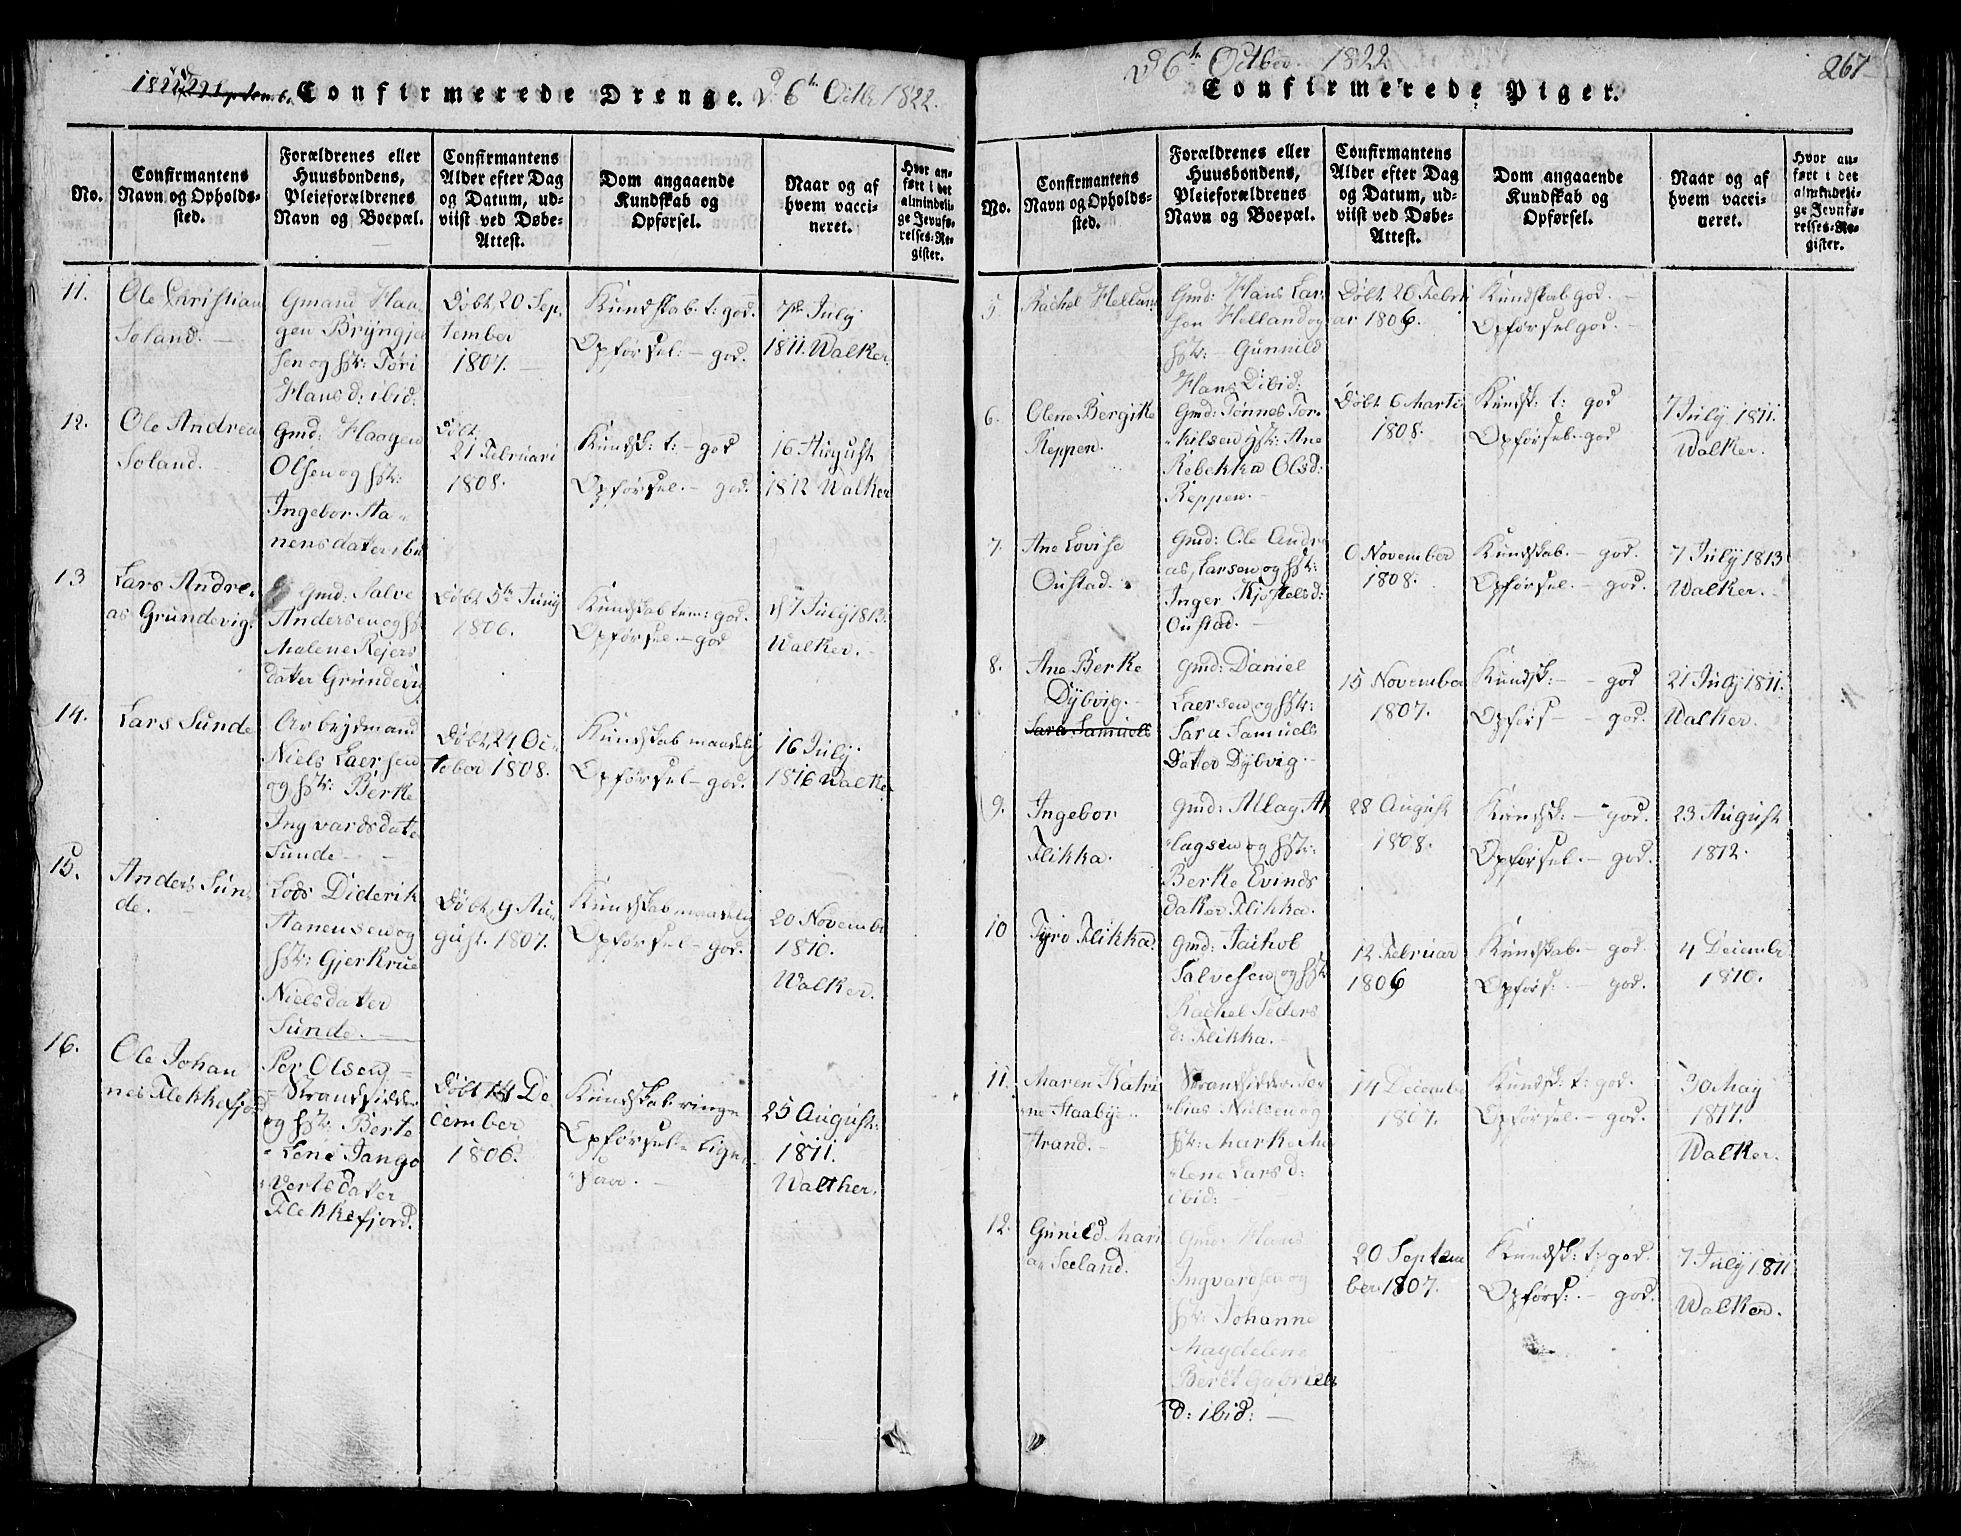 Confirmerede Drenge. d 6te Octbr 1822.
No.
Confirmantens
Navn og Opholds-
sted.
Forældrenes eller
Huusbondens,
Pleieforældrenes
Navn og Boepæl.
Confirmantens
Alder efter Dag
og Datum, ud-
viist ved Døbe-
Attest.
Dom angaaende
Kundskab og
Opførsel.
Naar og af
hvem vacci-
neret.
Hvor an-
ført i det
almindeli-
ge Jevnfø-
relses-Re-
gister.
11.
Ole Christian
Soland.
Gmand Haa
gen Bryngjel
sen og hstr: Tøri
Hansd: ibid:
Døbt 20 Sep
tember
1807.
Kundskab. t: god.
Opførsel: - god.
7de July
1811. Walker.
12.
Ole Andrea
Soland.
Gmd: Haagen
Olsen og hstr:
Ingebor Sta
nensdater ibid
Døbt
21 Februari
1808.
Kundsk: t: - god
Opførsel. - god.
16 August
1812 Walker
13
Lars Andre
as Grundevig.
Gmd: Salve
Andersen og hstr
Malene Rejers
dater Grundevig
Døbt 5te Juny
1806.
Kundskab tem: god.
Opførsel. - god
d 7 July 1813.
Walker. -
14.
Lars Sunde
Arbejdmand
Niels Laersen
og hstr: Berte
Ingvardsdater
Sunde -
Døbt, 24 Oc-
tober 1808.
Kundskab maadelig
Opførsel - god.
16 July
1816 Walker
15.
Anders Sun
de. -
Lods Diderik
Stanensen og
hstr: Gjertrue
Nielsdater
Sunde. -
Døbt, 9 Au-
gust. 1807.
Kundskab maadelig
Opførsel - god.
20 Novembr
1810.
Walker.
16.
Ole Johan
nes Flekkefjord
Per Olsen
Strandsidder
og hstr: Berte
Lene Tango
Vertsdater
Flekkefjord.
Døbt 14 De
cember
1806.
Kundskab ringe
Opførsel - lige
25 August.
1811.
Walther.
d 6te Octbr. 1822
267
Confirmerede Piger.
No.
Confirmantens
Navn og Opholds-
sted.
Forældrenes eller
Huusbondens,
Pleieforældrenes
Navn og Boepæl.
Confirmantens
Alder efter Dag
og Datum, ud-
viist ved Døbe-
Attest.
Dom angaaende
Kundskab og
Opførsel.
Naar og af
hvem vacci-
neret.
Hvor an-
ført i det
almindeli-
ge Jevnfø-
relses-Re-
gister.
5
Rachel Helland
Gmd: Hans Lar
sen Helland og
hstr: - Gunnild
Hans D ibid:
Døbt 26 Febru
ar 1806.
Kundskab god. -
Opførsel god. -
6.
Olene Bergitte
Reppen.
Gmd: Tønnes Tor-
kilsen og hstr: Ane
Rebekka Olsd:
Reppen. -
Døbt 6 Marti
1808.
Kundsk: t: god
Opførsel. - god
7 July 1811.
Walker.
7.
Ane Lovise
Oustad.
Gmd: Ole Andre
as, Larsen og hstr:
Inger Kjøstelsd:
Oustad. -
November
1808.
Kundskab. - god.
Opførsel. - god.
7 July 1813
Walker. -
8.
Ane Berte
Dybvig. -
Sara Samuels
Gmd: Daniel
Laersen og hstr:
Sara Samuels
Dater Dybvig. -
15 November
1807.
Kundsk: - - god
Opførs - - god.
21 July 1811.
Walker.
9.
Ingebor
Flikka.
Gmd: Atlag At
lagsen og hstr:
Berte Evinds
dater Flikka.
28 August
1808.
Kundsk: - god.
Opførsel. - god.
23 August
1812.
10
Tyro Flikka.
Gmd: Jachob
Salvesen og hstr
Rachel Peders
d: Flikka. -
12 Februar
1806
Kundskab. - god.
Opførs: - god.
4 Decembr
1810.
11.
Maren Katri
ne Staaby
strand. -
Strandsidder Tor
bias Nielsen og
hstr: Marte Ma
lene Larsd:
ibid: -
14 December
1807.
Kundsk: t: god.
Opførsel. - god.
30 May
1817.
Walker.
12.
Gunild Mari
a Seeland.
Gmd: Hans
Ingvardsen og
hstr: Johanne
Magdelene
Beret Gabriels
D: ibid: -
20 Septem
ber 1807.
Kundsk: t: god.
Opførs: - god.
7 July 1811
Walker.